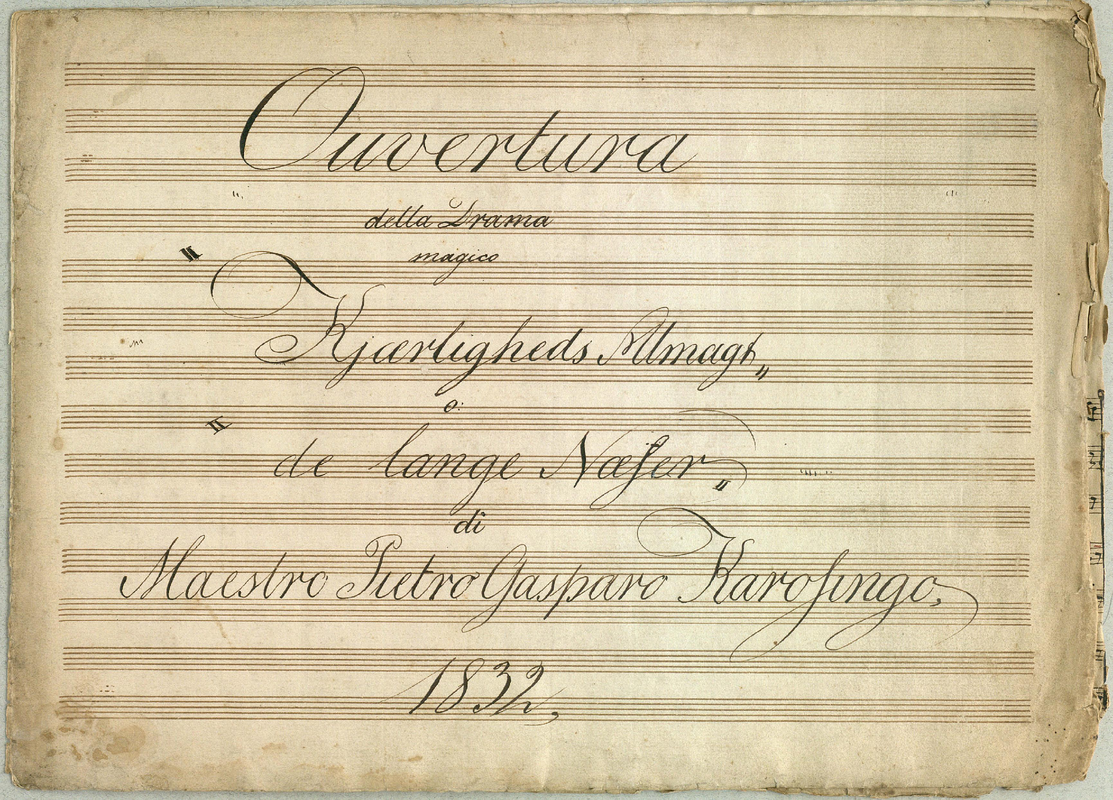 Ouvertura
della Drama
magico
"Kjærligheds Almagt„
o:
"de lange Næſer„
di
Maestro Pietro Gasparo Karoſingo,
1832,